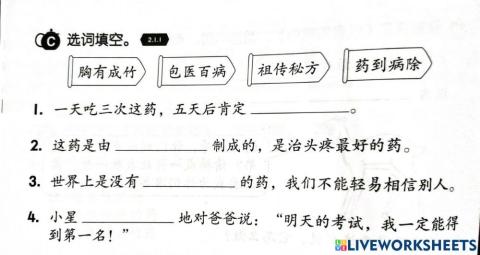 C 选词填空。 2.1.1
胸有成竹 包医百病 祖传秘方 药到病除
1. 一天吃三次这药，五天后肯定____________。
2. 这药是由____________制成的，是治头疼最好的药。
3. 世界上是没有____________的药，我们不能轻易相信别人。
4. 小星____________地对爸爸说：“明天的考试，我一定能得
到第一名！”
LIVEWORKSHEETS